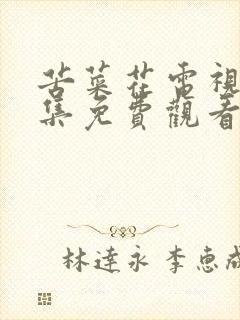 苦菜花電視
集免費觀看
林達永 李惠成